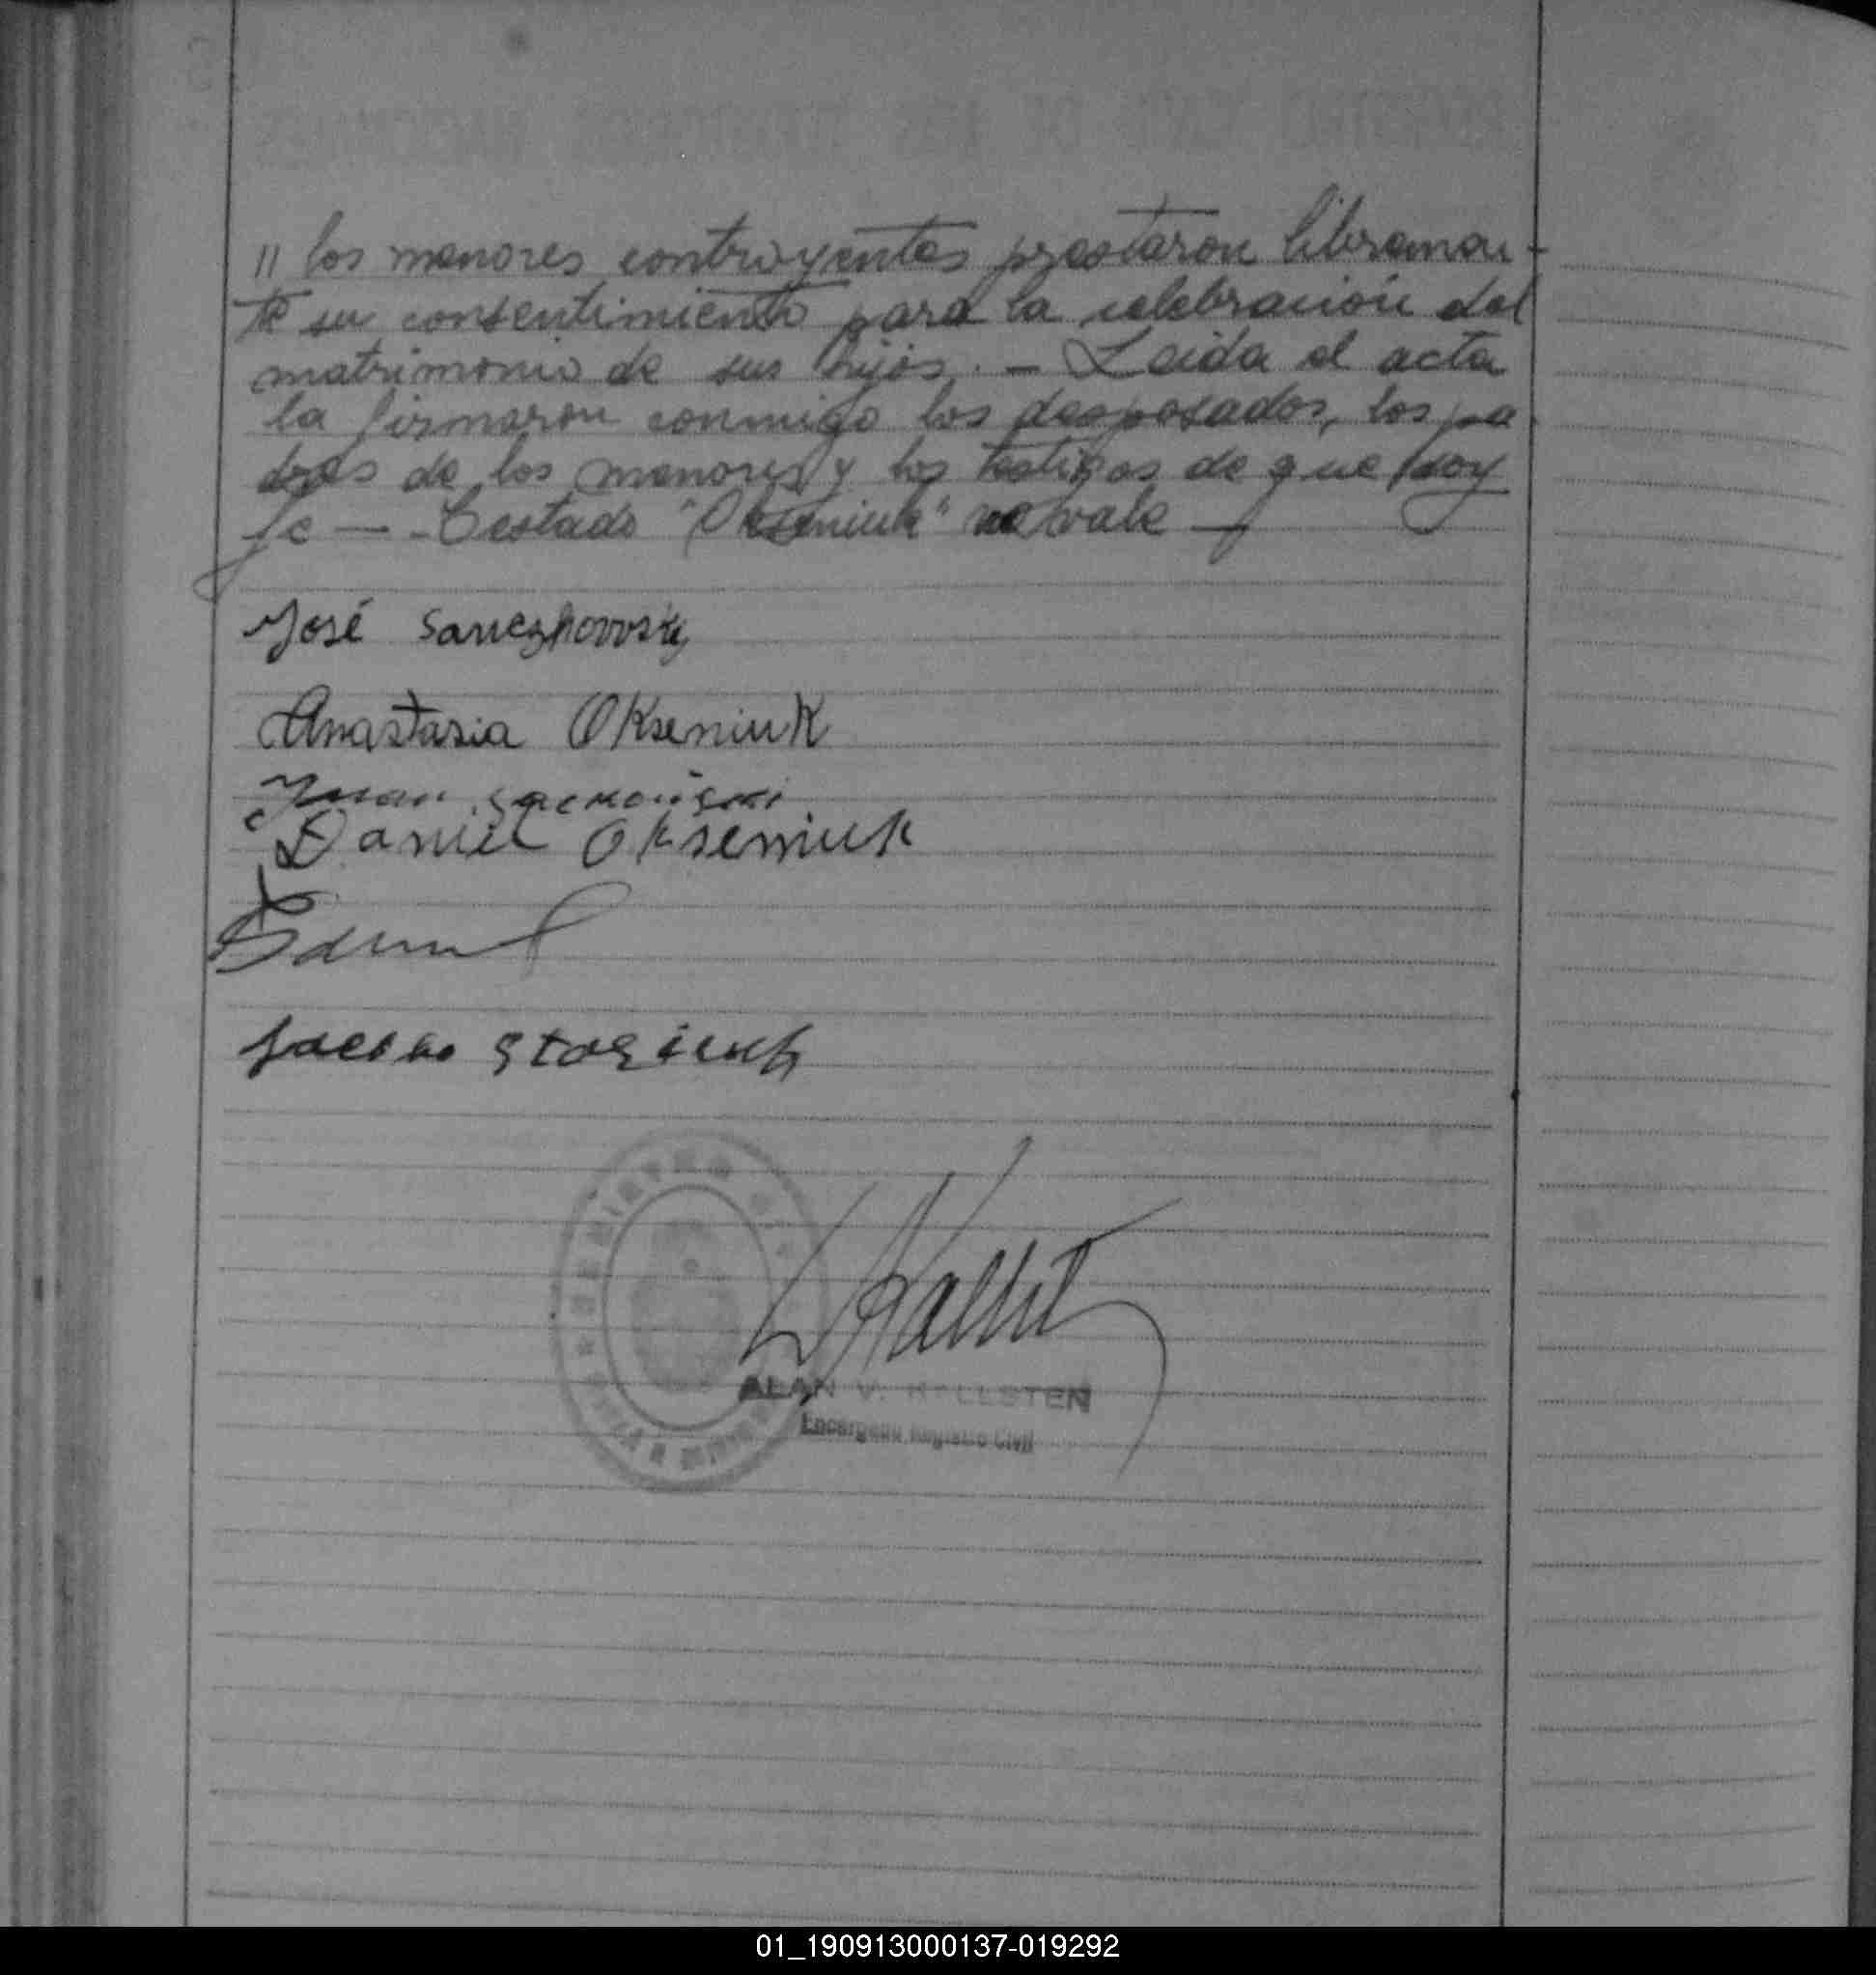 " los menores contrayentes prestaron libremen-
te su consentimiento para la celebración del
matrimonio de sus hijos. - Leida el acta
la firmaron conmigo los desposados, los pa
dres de los menores y los testigos de que doy
fe — - Testado "Okseniuk" no vale —
José
Anastasia Okseniuk
Juan
Daniel Okseniuk
ALAN V. HALLSTEN
Encargado Registro Civil
01_190913000137-019292